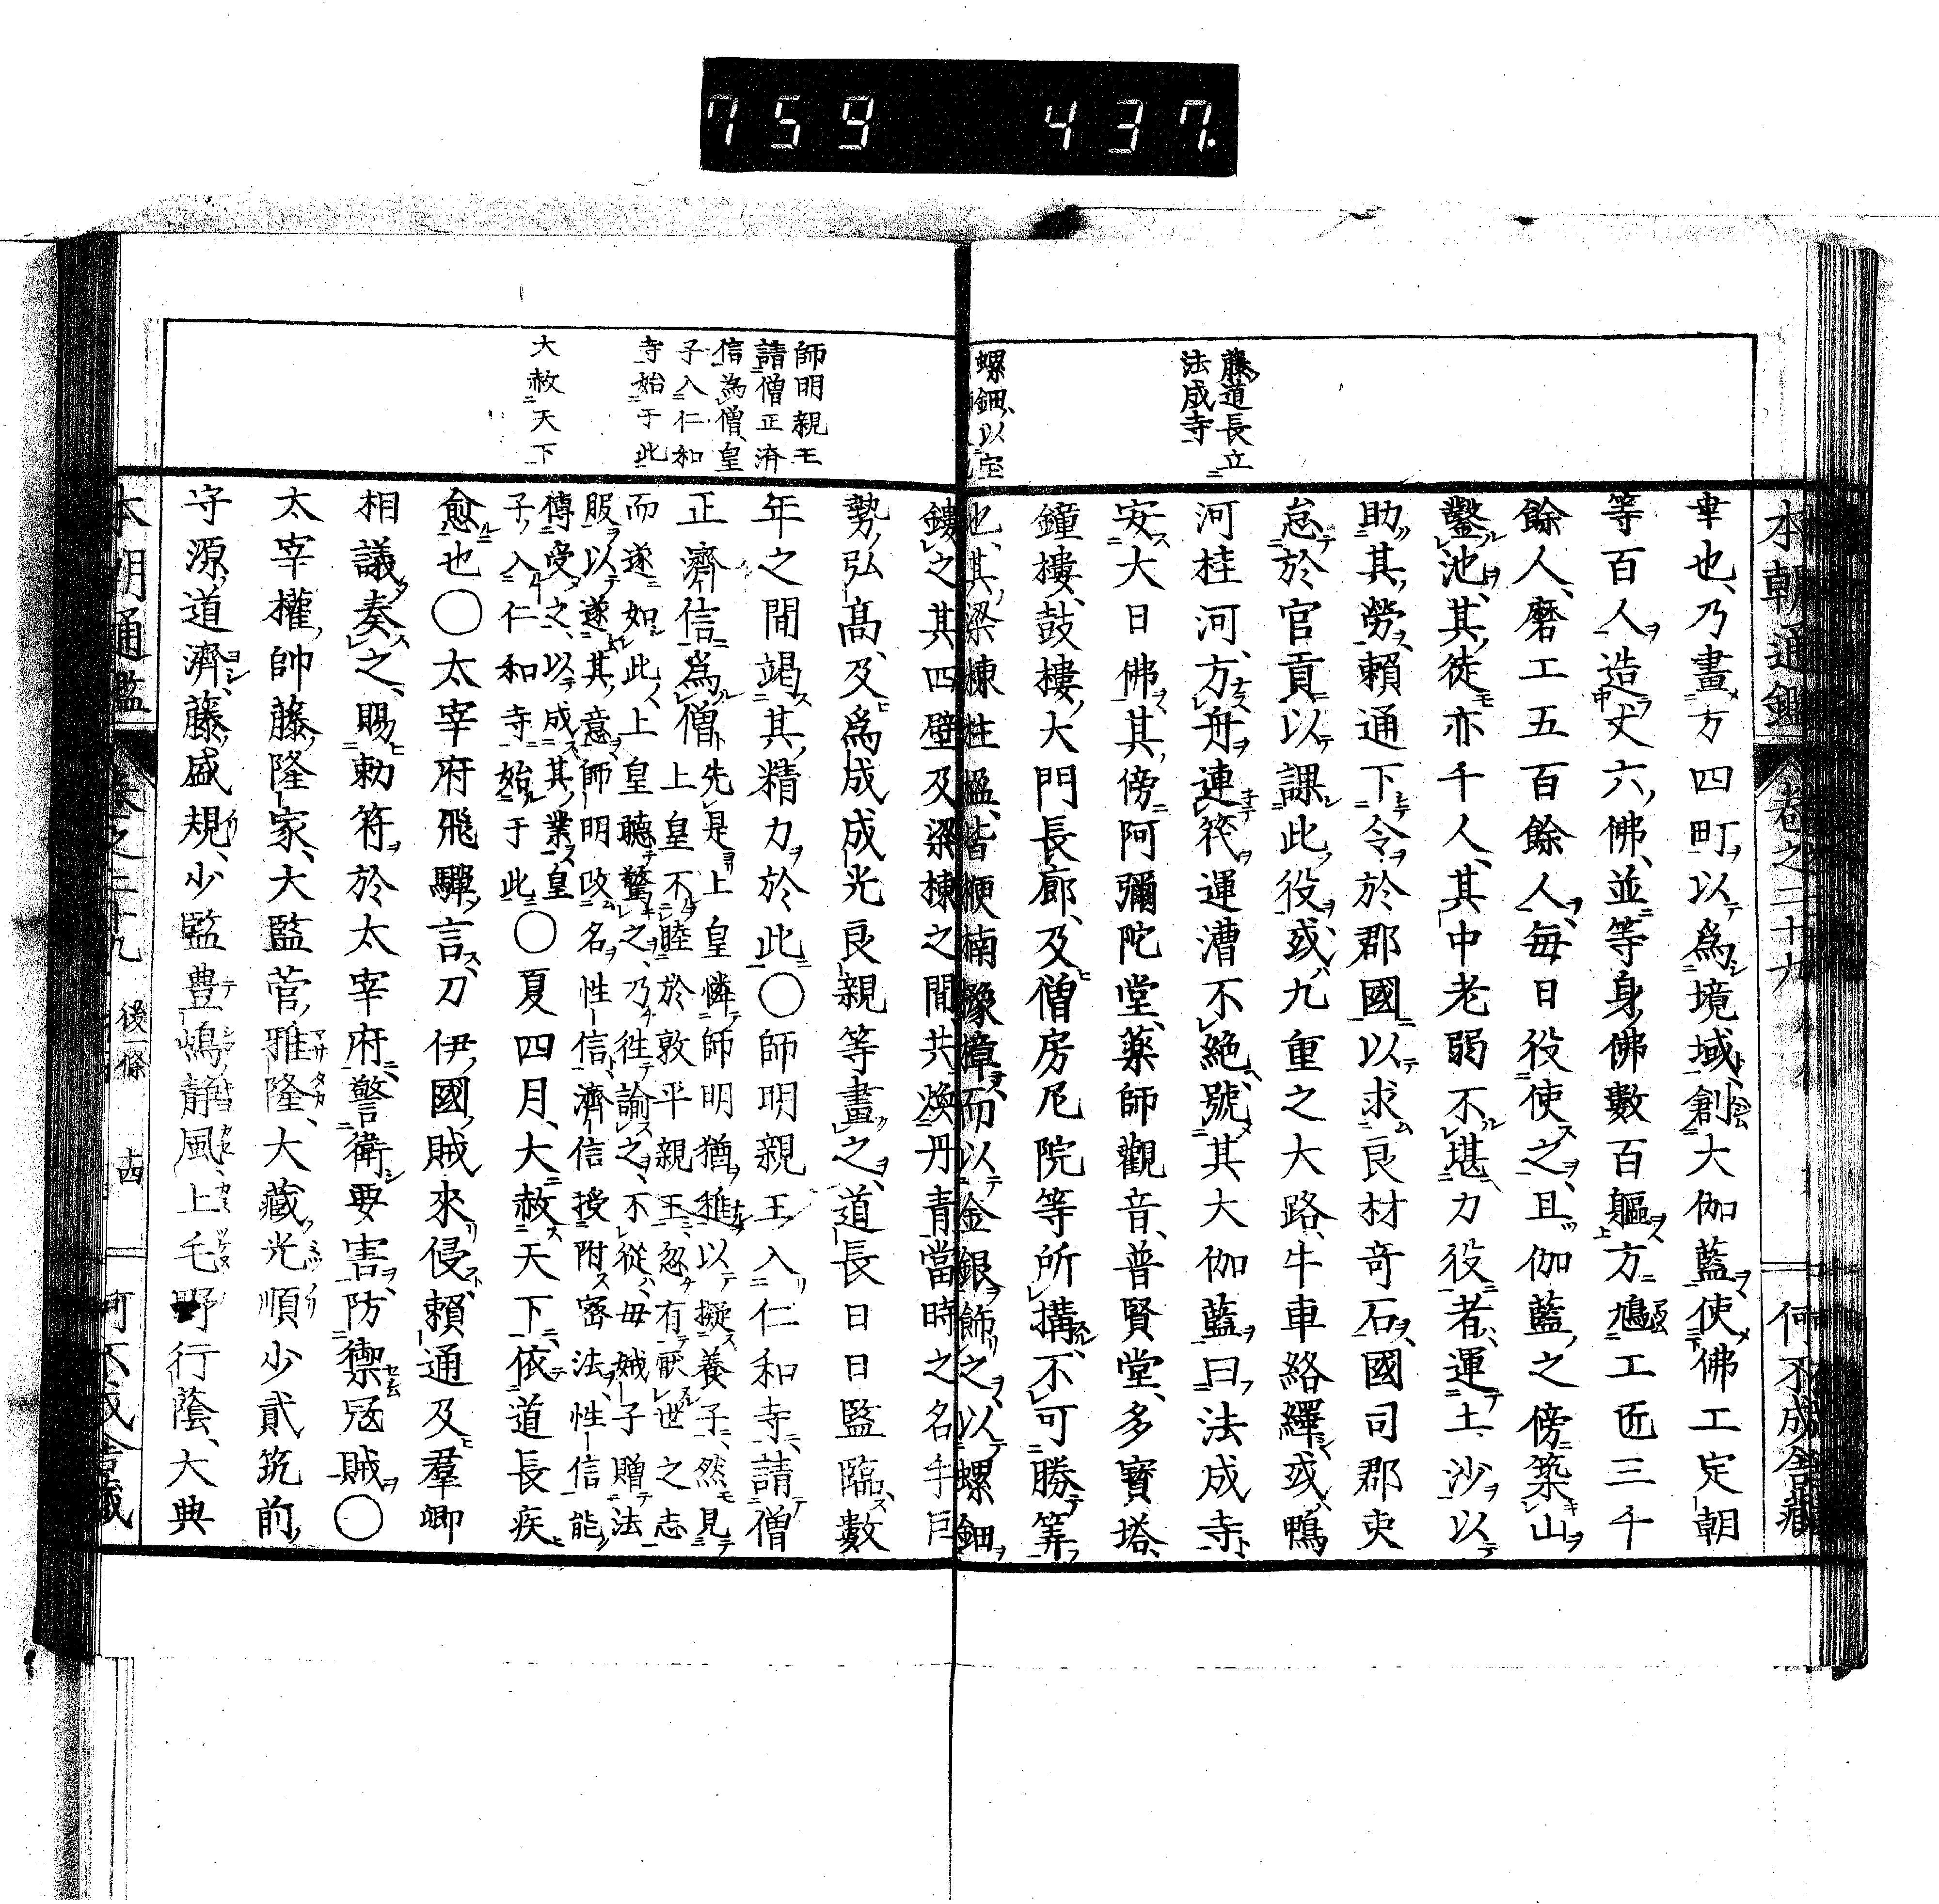 759 437.
本朝通鑑 卷之二十九 何不成舍藏
藤道長立
法成寺
螺鈿以宝
幸也乃畫方四町以爲境域創大伽藍使佛工定朝
等百人造丈六佛並等身佛數百軀方鳩工匠三千
餘人磨工五百餘人每日役使之且伽藍之傍築山
鑿池其徒亦千人其中老弱不堪力役者運土沙以
助其勞賴通下令於郡國以求良材奇石國司郡吏
怠於官貢以課此役或九重之大路牛車絡繹或鴨
河桂河方舟連筏運漕不絕號其大伽藍曰法成寺
安大日佛其傍阿彌陀堂藥師觀音普賢堂多寶塔
鐘樓鼓樓大門長廊及僧房尼院等所搆不可勝筭
也其梁棟柱楹皆楩楠豫樟而以金銀飾之以螺鈿
鏤之其四壁及梁棟之間共煥丹青當時之名手巨
勢弘高及爲成成光良親等畫之道長日日監臨數
年之間竭其精力於此〇師明親王入仁和寺請僧
正濟信爲僧先是上皇憐師明猶稚以擬養子然見
上皇不睦於敦平親王忽有厭世之志
而遂如此上皇聽驚之乃往諭之不從毋娍子贈法
服以遂其意師明改名性信濟信授附密法性信能
傳受之以成其業皇
子入仁和寺始于此〇夏四月大赦天下依道長疾
愈也〇太宰府飛驛言刀伊國賊來侵賴通及羣卿
相議奏之賜勅符於太宰府警衛要害防禦冦賊〇
太宰權帥藤隆家大監菅雅隆大藏光順少貳筑前
守源道濟藤盛規少監豊嶋靜風上毛野行蔭大典
師明親王
請僧正濟
信爲僧皇
子入仁和
寺始于此
大赦天下
本朝通鑑 卷之二十九 後一條 十四